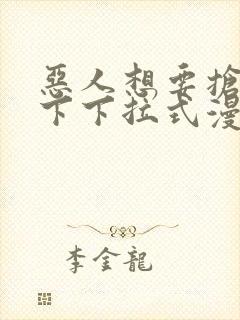 惡人想要搶
下下拉式漫
李金龍